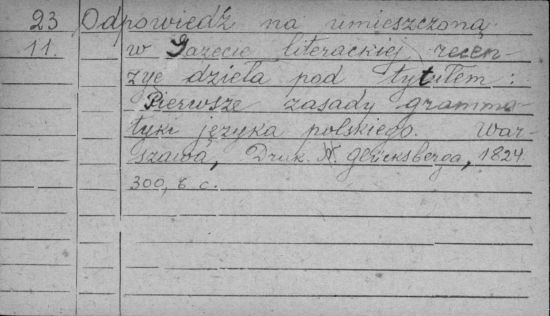 23 Odpowiedź na umieszczoną
11. w Gazecie literackiej recen-
zye dzieła pod tytułem:
Pierwsze zasady gramma-
tyki języka polskiego. War-
szawa, Druk. N. Glücksberga, 1824
300, 8 c.